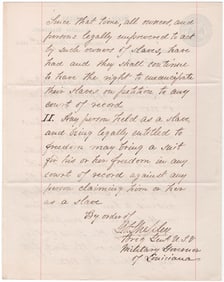 Since that time, all owners, and
persons legally empowered to act
by such owners of slaves, have
had and they shall continue
to have the right to emancipate
their slaves on petition to any
court of record
II. Any person held as a slave,
and being legally entitled to
freedom may bring a suit
for his or her freedom in any
court of record against any
person claiming him or her
as a slave.
By order of
G. F. Shepley
Brig Genl U.S.V.
Military Governor
of Louisiana